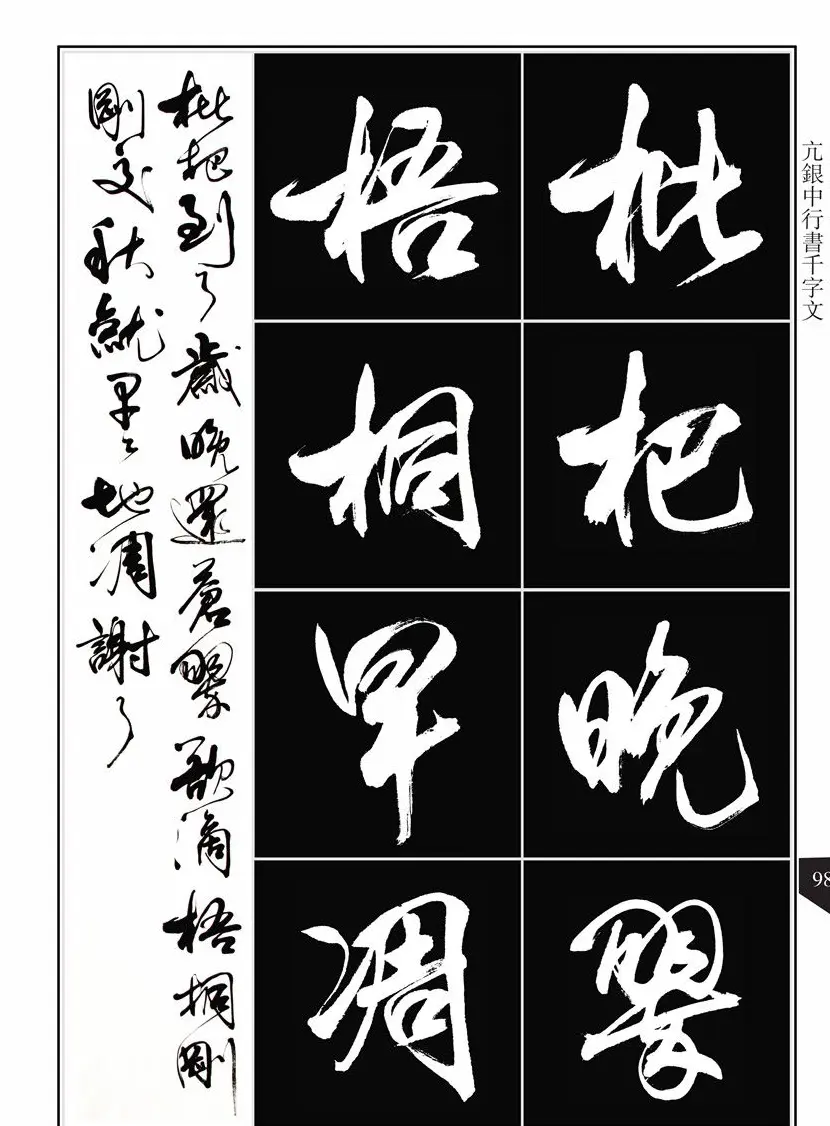 亢銀中行書千字文
枇杷晚翠
梧桐早凋
枇杷到了歲晚還蒼翠欲滴梧桐剛
剛交秋就早早地凋謝了
98